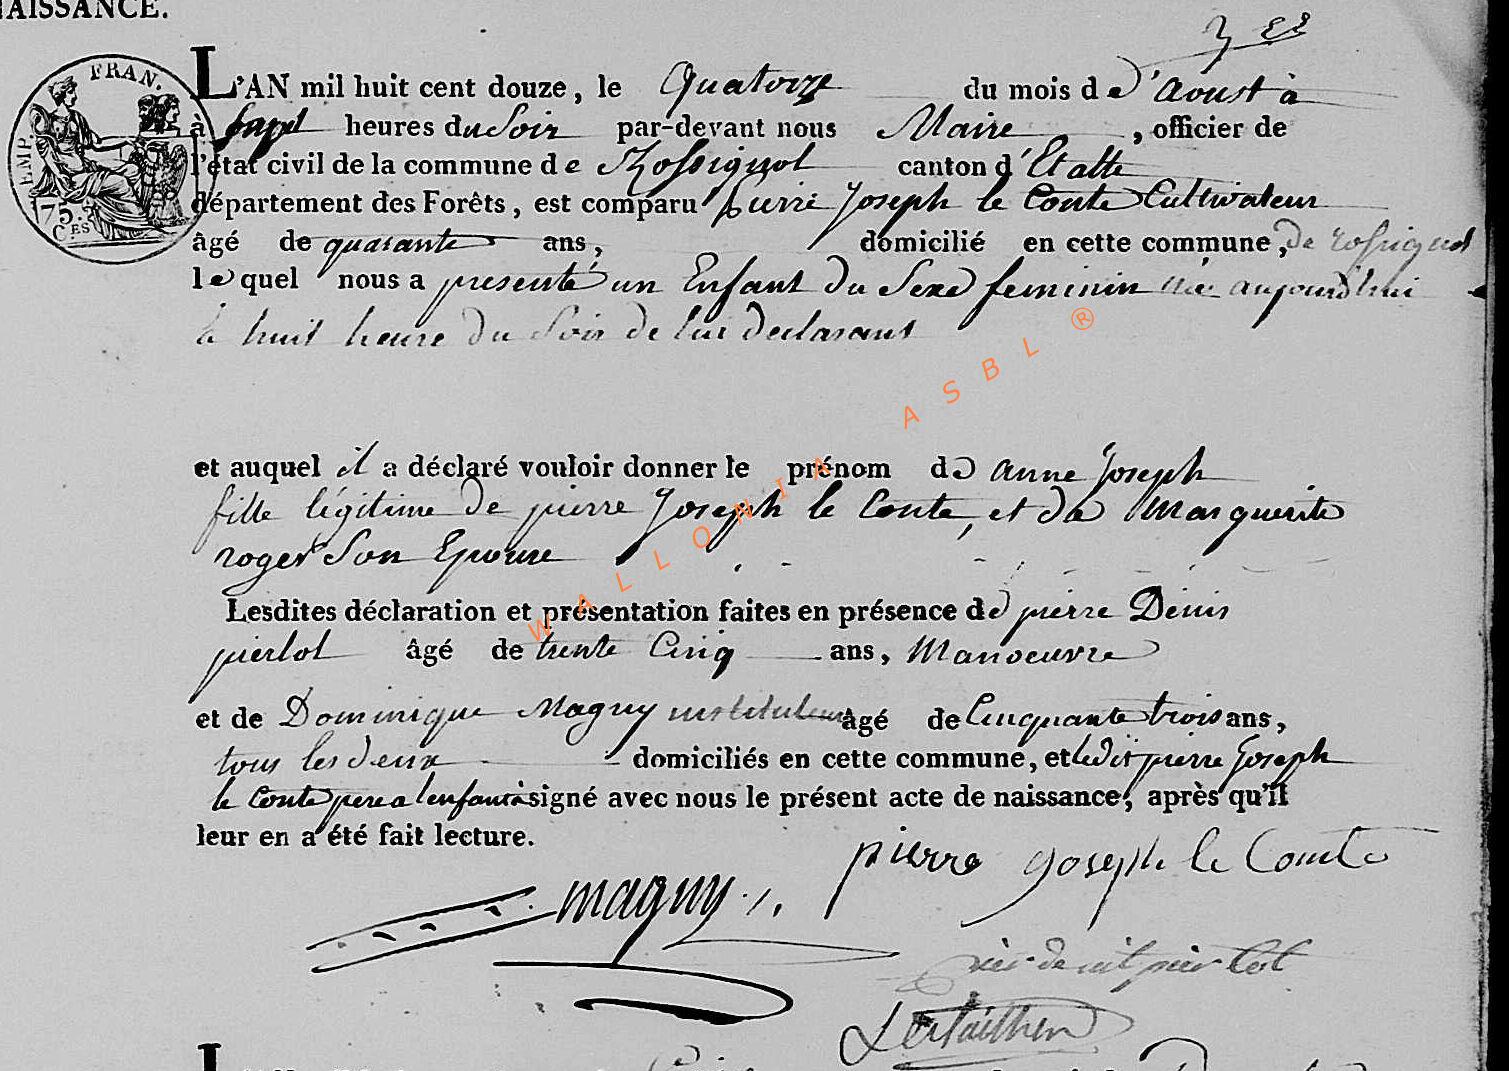 NAISSANCE.
FRAN.
EMP.
75.
CES
L'AN mil huit cent douze, le Quatorze du mois de d'aoust à
à sept heures du Soir par-devant nous Maire, officier de
l'état civil de la commune de Rossignol canton d'Etalle
département des Forêts, est comparu pierre Joseph le Conte Cultivateur
âgé de quarante ans, domicilié en cette commune, de rossignol
lequel nous a presenté un Enfant du Sexe feminin née aujourd'hui
à huit heure du Soir de lui declarant
et auquel il a déclaré vouloir donner le prénom de anne Joseph
fille légitime de pierre Joseph le Conte, et de Marguerite
roger Son Epouse
Lesdites déclaration et présentation faites en présence de pierre Denis
pierlot âgé de trente Cinq ans, Manoeuvre
et de Dominique Magny instituteur âgé de Cinquante trois ans,
tous les deux domiciliés en cette commune, et ledit pierre Joseph
le Conte pere a l'enfant à signé avec nous le présent acte de naissance, après qu'il
leur en a été fait lecture.
pierre Joseph le Comte
magny
pierlot
WALLONIA ASBL ®